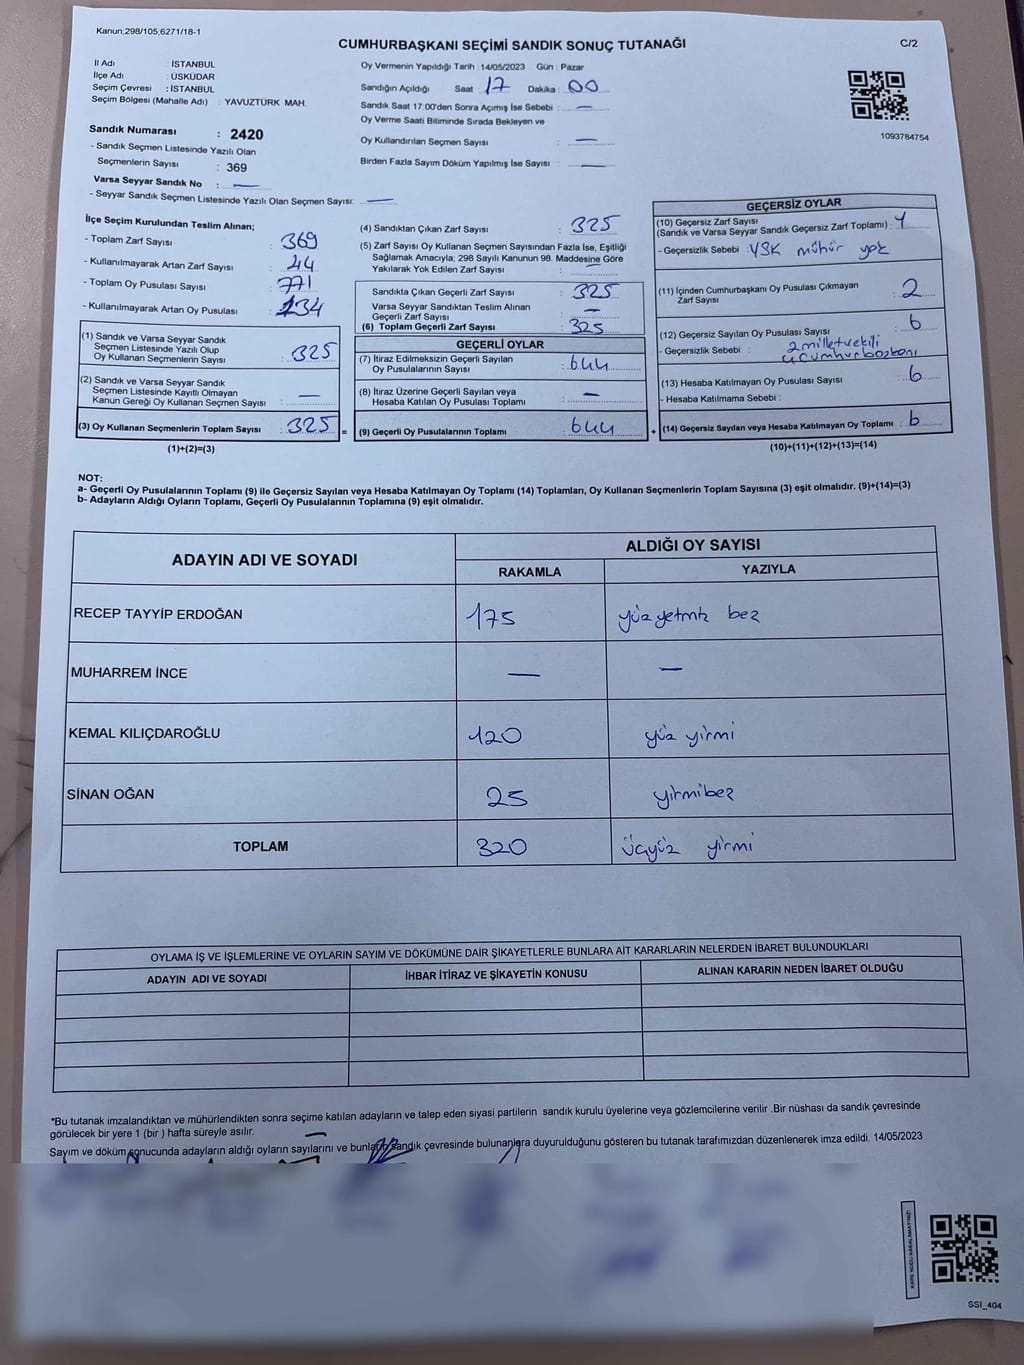 Kanun,298/105,6271/18-1
CUMHURBAŞKANI SEÇİMİ SANDIK SONUÇ TUTANAĞI
C/2
İl Adı : İSTANBUL
İlçe Adı : ÜSKÜDAR
Seçim Çevresi : İSTANBUL
Seçim Bölgesi (Mahalle Adı) : YAVUZTÜRK MAH.
Sandık Numarası : 2420
- Sandık Seçmen Listesinde Yazılı Olan
Seçmenlerin Sayısı : 369
Varsa Seyyar Sandık No : —
- Seyyar Sandık Seçmen Listesinde Yazılı Olan Seçmen Sayısı: —
Oy Vermenin Yapıldığı Tarih :14/05/2023 Gün : Pazar
Sandığın Açıldığı Saat : 17 Dakika : 00
Sandık Saat 17:00'den Sonra Açılmış İse Sebebi : —
Oy Verme Saati Bitiminde Sırada Bekleyen ve
Oy Kullandırılan Seçmen Sayısı : —
Birden Fazla Sayım Döküm Yapılmış İse Sayısı : —
1093784754
İlçe Seçim Kurulundan Teslim Alınan;
- Toplam Zarf Sayısı : 369
- Kullanılmayarak Artan Zarf Sayısı : 44
- Toplam Oy Pusulası Sayısı : 771
- Kullanılmayarak Artan Oy Pusulası : 134
(1) Sandık ve Varsa Seyyar Sandık
Seçmen Listesinde Yazılı Olup
Oy Kullanan Seçmenlerin Sayısı : 325
(2) Sandık ve Varsa Seyyar Sandık
Seçmen Listesinde Kayıtlı Olmayan
Kanun Gereği Oy Kullanan Seçmen Sayısı : —
(3) Oy Kullanan Seçmenlerin Toplam Sayısı : 325 =
(1)+(2)=(3)
(4) Sandıktan Çıkan Zarf Sayısı : 325
(5) Zarf Sayısı Oy Kullanan Seçmen Sayısından Fazla İse, Eşitliği
Sağlamak Amacıyla; 298 Sayılı Kanunun 98. Maddesine Göre
Yakılarak Yok Edilen Zarf Sayısı :
Sandıkta Çıkan Geçerli Zarf Sayısı : 325
Varsa Seyyar Sandıktan Teslim Alınan
Geçerli Zarf Sayısı : —
(6) Toplam Geçerli Zarf Sayısı : 325
GEÇERLİ OYLAR
(7) İtiraz Edilmeksizin Geçerli Sayılan
Oy Pusulalarının Sayısı : 644
(8) İtiraz Üzerine Geçerli Sayılan veya
Hesaba Katılan Oy Pusulası Toplamı : —
(9) Geçerli Oy Pusulalarının Toplamı : 644 +
GEÇERSİZ OYLAR
(10) Geçersiz Zarf Sayısı
(Sandık ve Varsa Seyyar Sandık Geçersiz Zarf Toplamı) :
- Geçersizlik Sebebi : YSK mühür yok
(11) İçinden Cumhurbaşkanı Oy Pusulası Çıkmayan
Zarf Sayısı : 2
(12) Geçersiz Sayılan Oy Pusulası Sayısı : 6
- Geçersizlik Sebebi : 2 milletvekili
4 cumhurbaşkanı
(13) Hesaba Katılmayan Oy Pusulası Sayısı : 6
- Hesaba Katılmama Sebebi :
(14) Geçersiz Sayılan veya Hesaba Katılmayan Oy Toplamı : 6
(10)+(11)+(12)+(13)=(14)
NOT:
a- Geçerli Oy Pusulalarının Toplamı (9) ile Geçersiz Sayılan veya Hesaba Katılmayan Oy Toplamı (14) Toplamları, Oy Kullanan Seçmenlerin Toplam Sayısına (3) eşit olmalıdır. (9)+(14)=(3)
b- Adayların Aldığı Oyların Toplamı, Geçerli Oy Pusulalarının Toplamına (9) eşit olmalıdır.
ADAYIN ADI VE SOYADI
ALDIĞI OY SAYISI
RAKAMLA
YAZIYLA
RECEP TAYYİP ERDOĞAN 175 yüzyetmiş beş
MUHARREM İNCE — —
KEMAL KILIÇDAROĞLU 120 yüz yirmi
SİNAN OĞAN 25 yirmibeş
TOPLAM 320 üçyüz yirmi
OYLAMA İŞ VE İŞLEMLERİNE VE OYLARIN SAYIM VE DÖKÜMÜNE DAİR ŞİKAYETLERLE BUNLARA AİT KARARLARIN NELERDEN İBARET BULUNDUKLARI
ADAYIN ADI VE SOYADI
İHBAR İTİRAZ VE ŞİKAYETİN KONUSU
ALINAN KARARIN NEDEN İBARET OLDUĞU
*Bu tutanak imzalandıktan ve mühürlendikten sonra seçime katılan adayların ve talep eden siyasi partilerin sandık kurulu üyelerine veya gözlemcilerine verilir .Bir nüshası da sandık çevresinde
görülecek bir yere 1 (bir ) hafta süreyle asılır.
Sayım ve döküm sonucunda adayların aldığı oyların sayılarını ve bunların sandık çevresinde bulunanlara duyurulduğunu gösteren bu tutanak tarafımızdan düzenlenerek imza edildi. 14/05/2023
KARE KODU KARALAMAYINIZ!
SSI_404